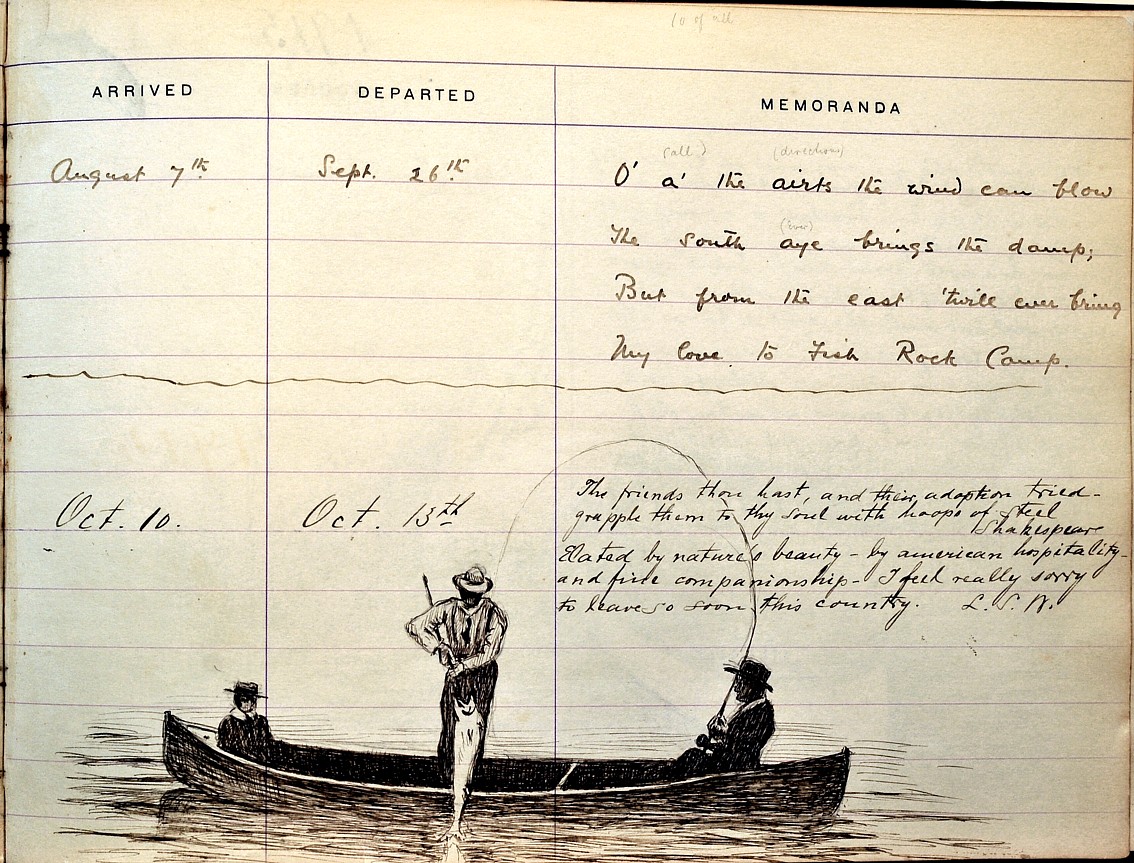 10 of all
ARRIVED DEPARTED MEMORANDA
(all) (directions)
August 7th Sept. 26th O' a' the airts the wind can blow
(ever)
The south aye brings the damp;
But from the east 'twill ever bring
My love to Fish Rock Camp.
Oct. 10. Oct. 13th The friends thou hast, and their adoption tried-
grapple them to thy soul with hoops of steel
Shakespeare
Elated by nature's beauty - by american hospitality-
and fine companionship - I feel really sorry
to leave so soon this country. L. S. W.